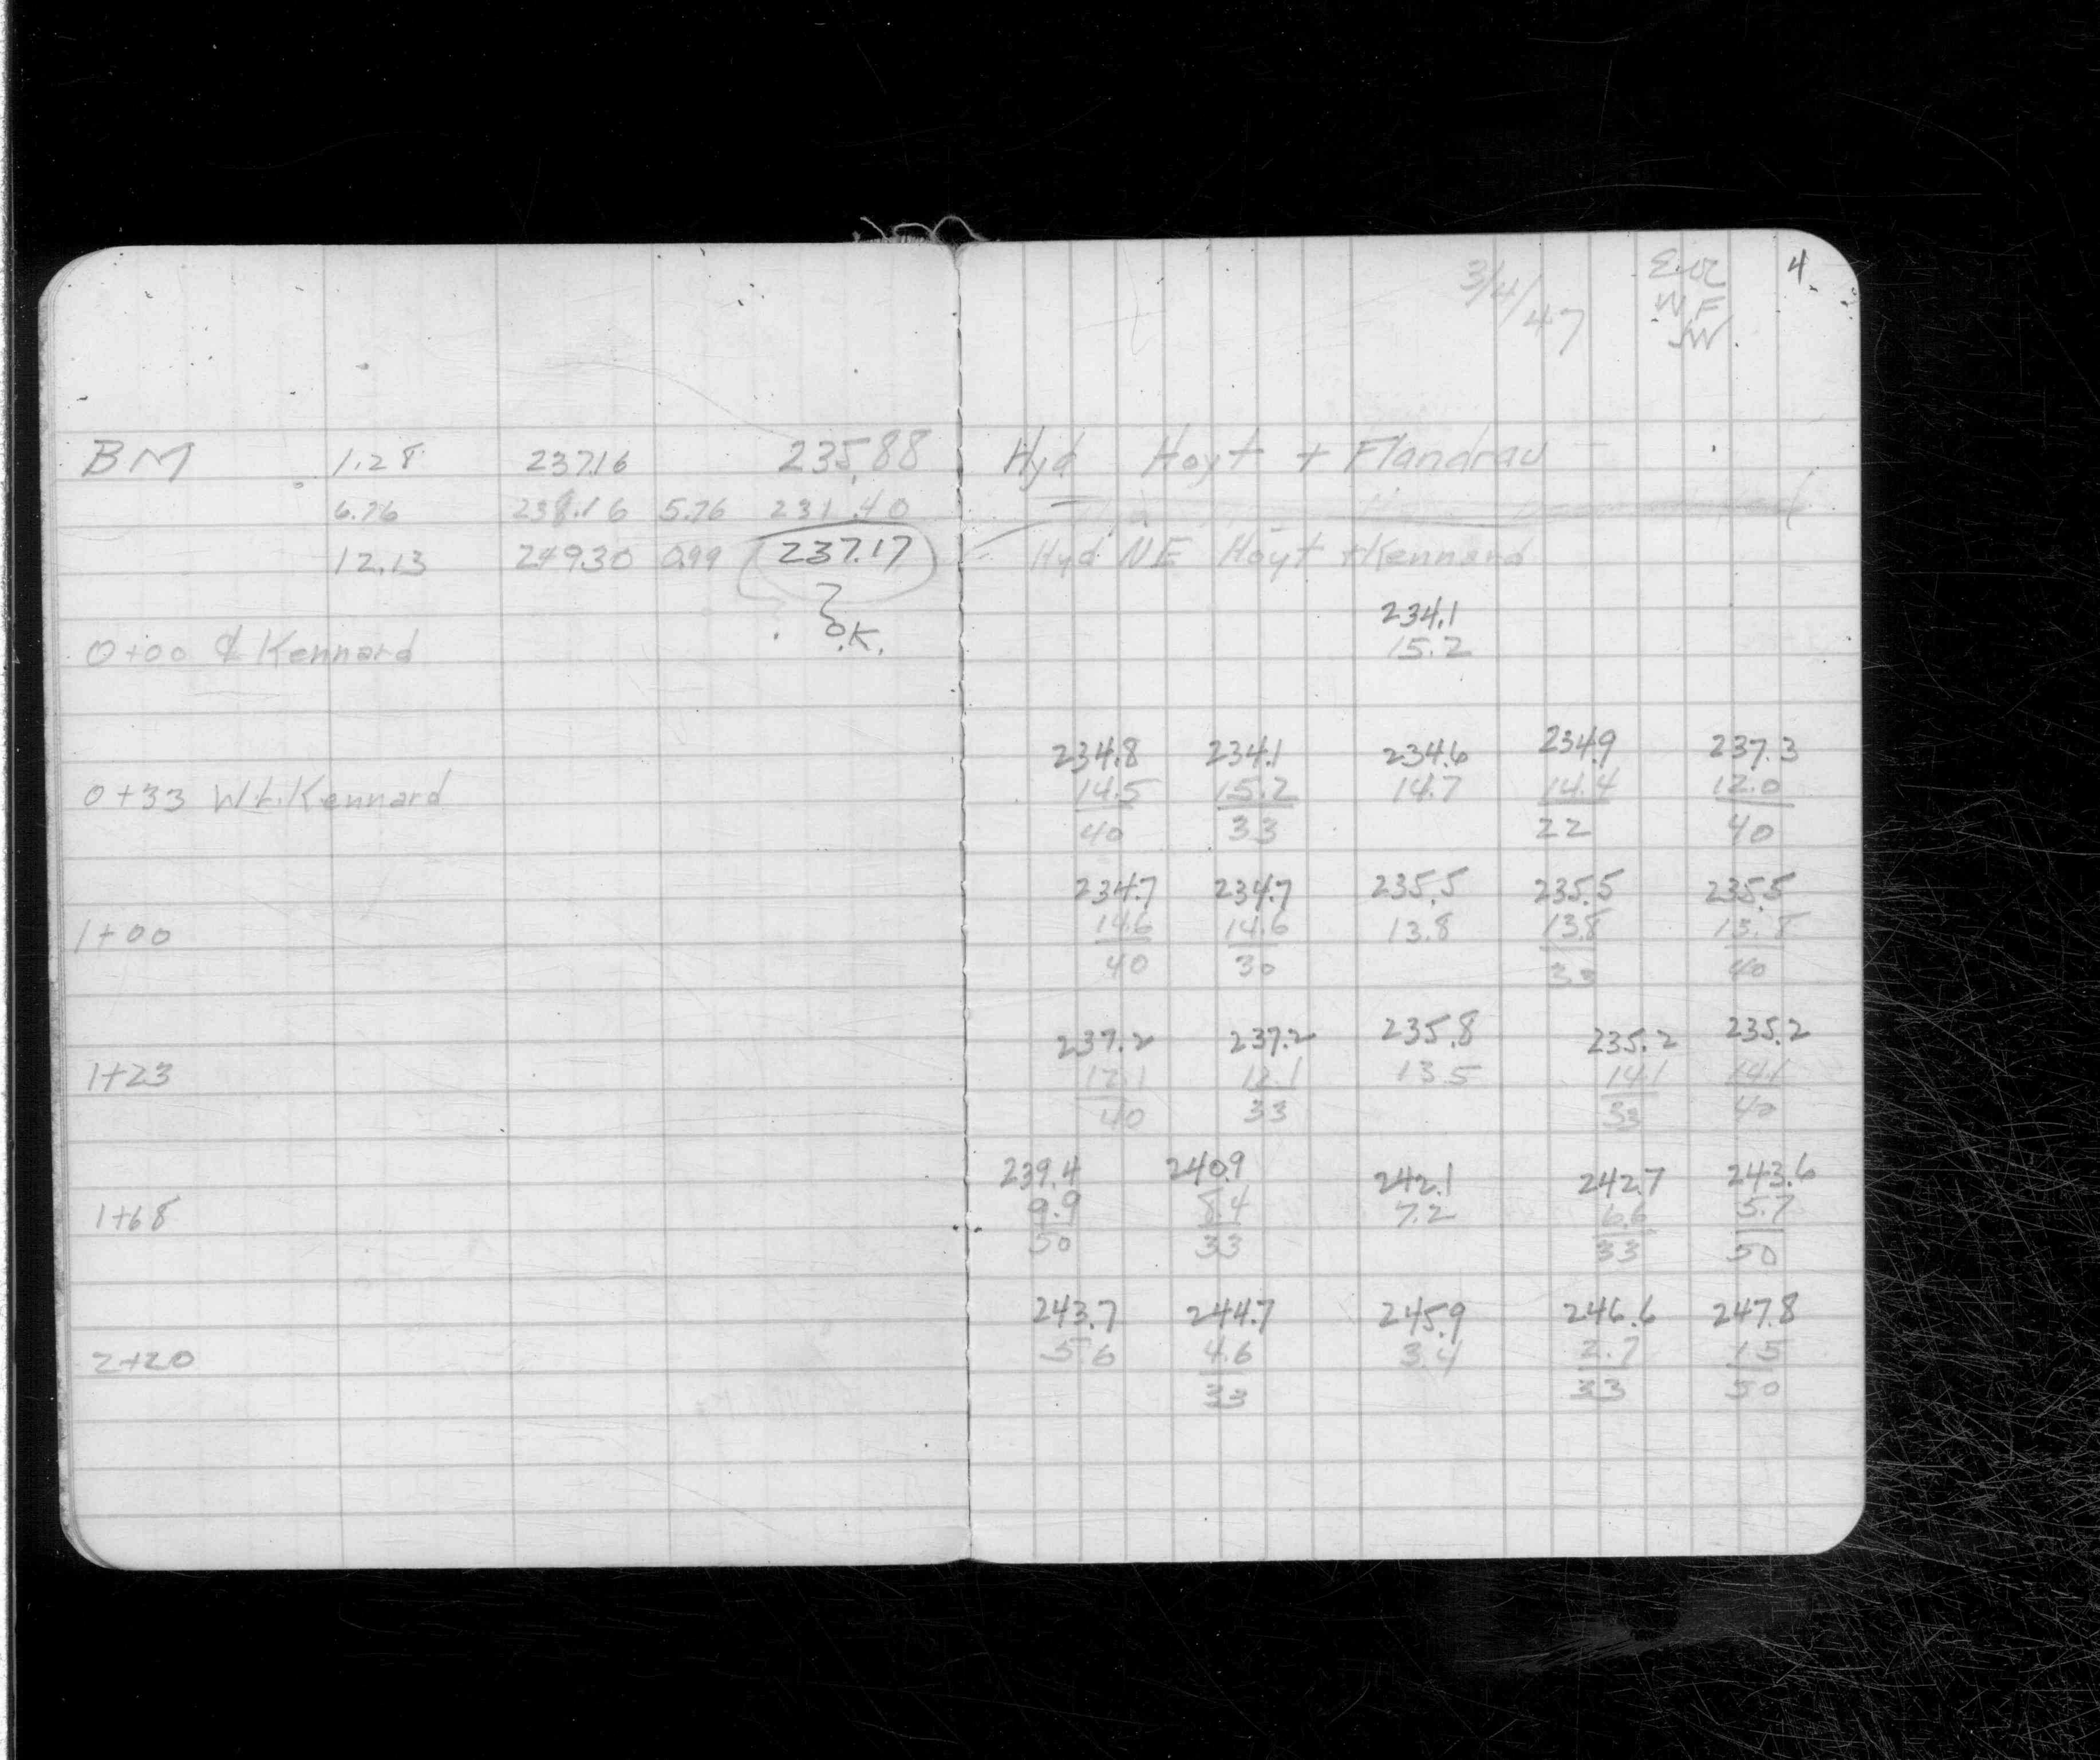 3/4/47 W.F 4
JW.
BM 1.28 237.16 235.88 Hyd Hoyt + Flandrau
6.76 238.16 5.76 231.40
12.13 249.30 0.99 237.17 Hyd. NE Hoyt + Kennard
O.K.
234.1
0+00 ₵ Kennard 15.2
234.8 234.1 234.6 234.9 237.3
0+33 W.L. Kennard 14.5 15.2 14.7 14.4 12.0
40 33 22 40
234.7 234.7 235.5 235.5 235.5
1+00 14.6 14.6 13.8 13.8 13.8
40 30 30 40
237.2 237.2 235.8 235.2 235.2
1+23 12.1 12.1 13.5 14.1 14.1
40 33 33 40
239.4 240.9 242.1 242.7 243.6
1+68 9.9 8.4 7.2 6.6 5.7
50 33 33 50
243.7 244.7 245.9 246.6 247.8
2+20 5.6 4.6 3.4 2.7 1.5
33 33 50